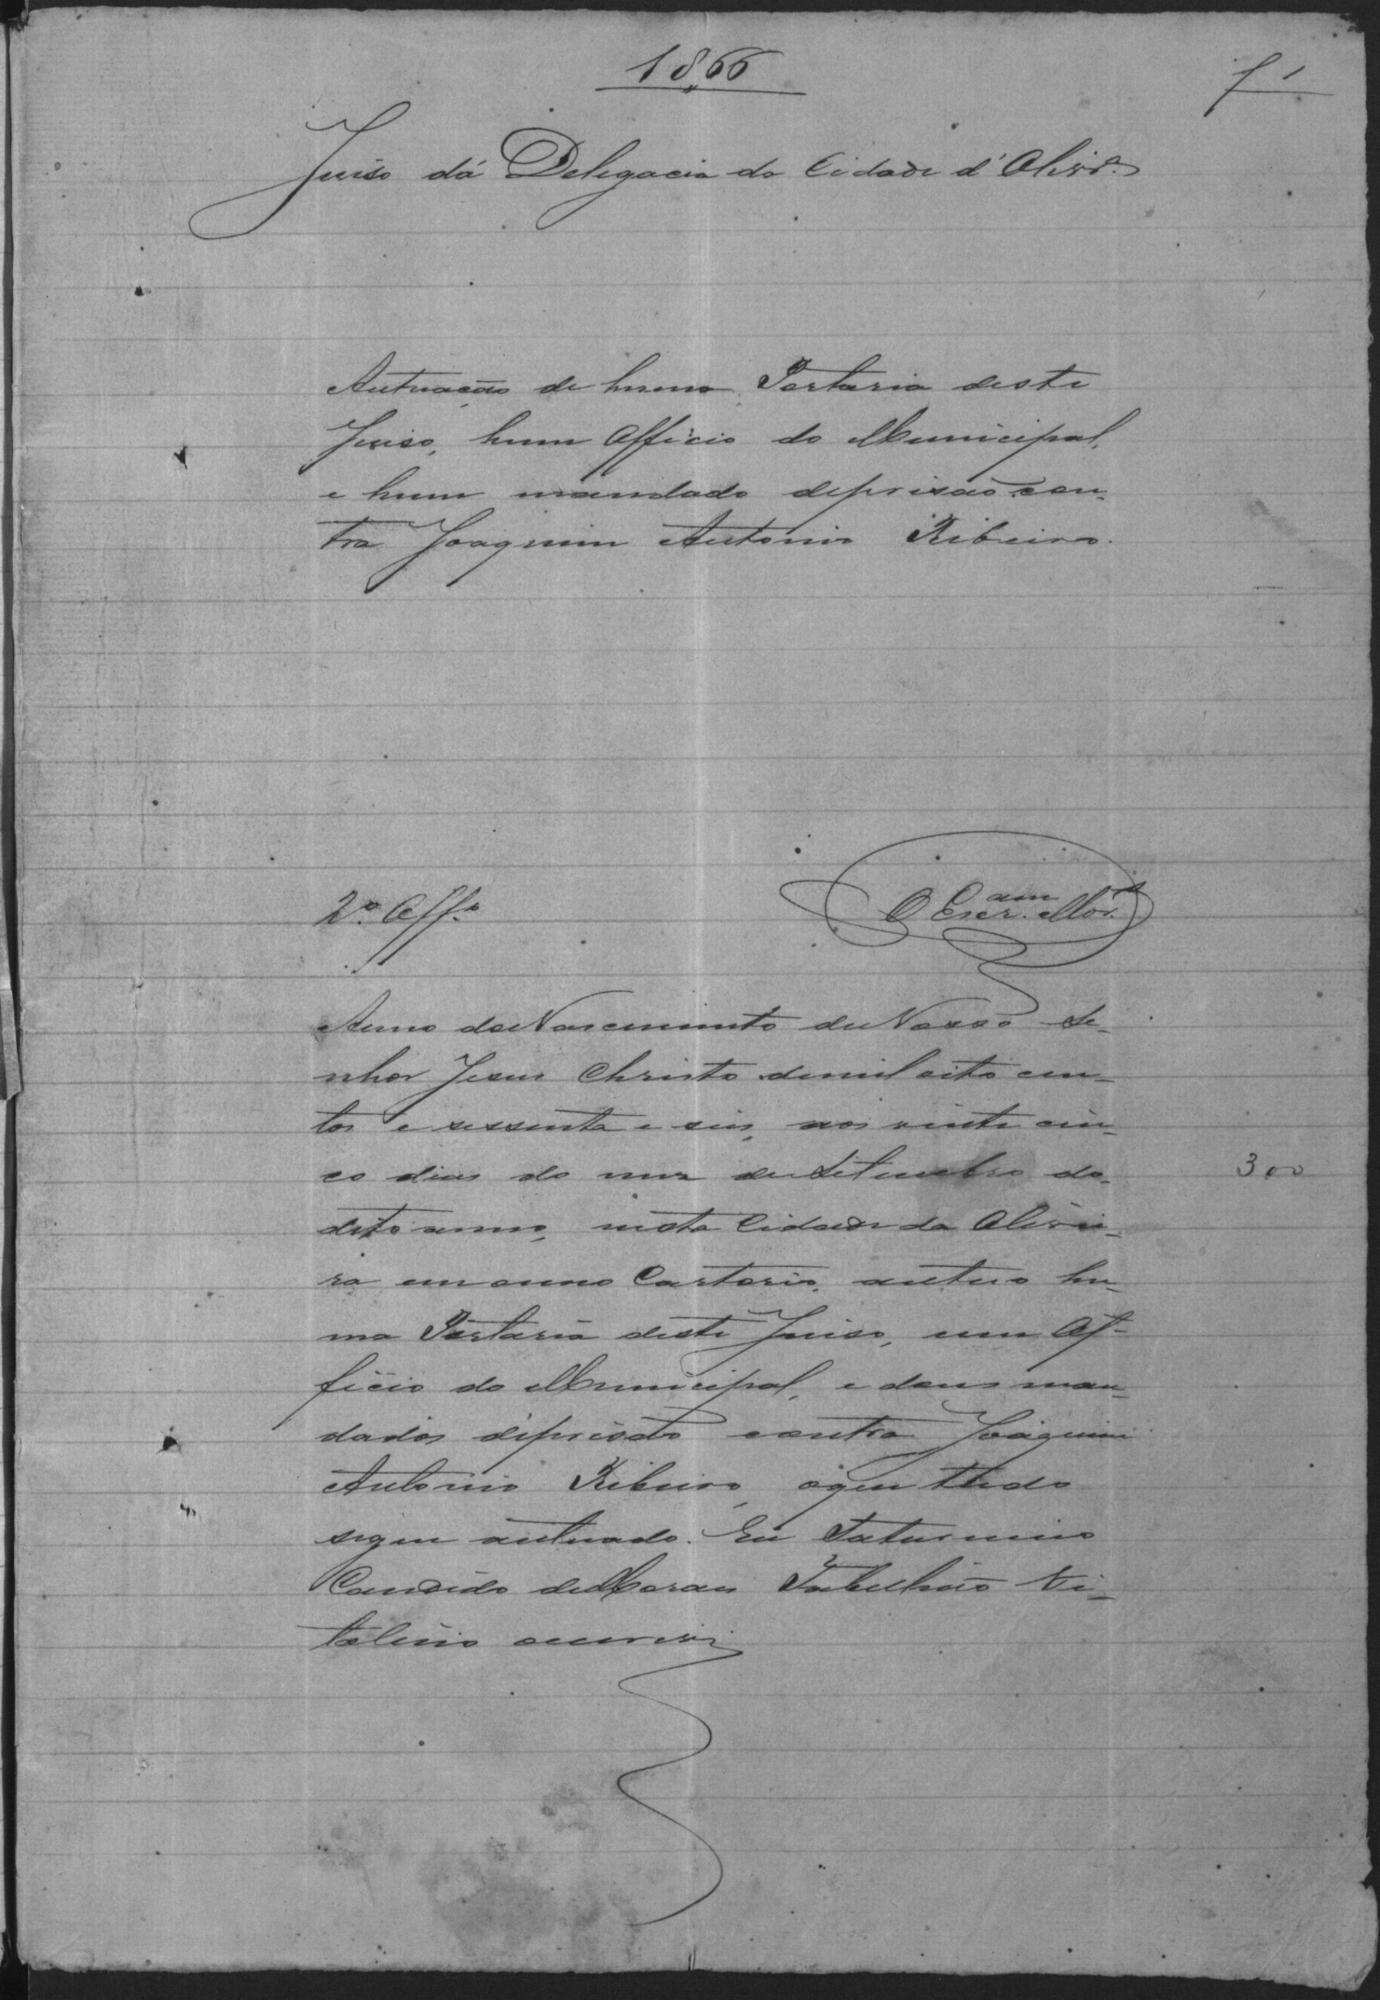 1866
f 1
Juiso da Delegacia da Cidade d'Olivr.ª
Autuacão de huma Portaria deste
Juiso, hum Officio do Municipal,
e hum mandado deprisão con-
tra Joaquim Antonio Ribeiro.
2.º Off.º
O Escr.am Mor.
Anno do Nascimento de Nosso Se-
nhor Jesus Christo demil oito cen-
tos e sessenta e seis, aos vinte cin-
co dias do mez de Setembro do
dito anno, nesta Cidade da Olivei-
ra em meo Cartorio, autuo hu-
ma Portaria deste Juiso, um Of-
ficio do Municipal, e dous man-
dados deprisão contra Joaquim
Antonio Ribeiro, oque tudo
segue autuado. Eu Saturnino
Candido de Moraes Tabellião Vi-
talicio oescrevi
300